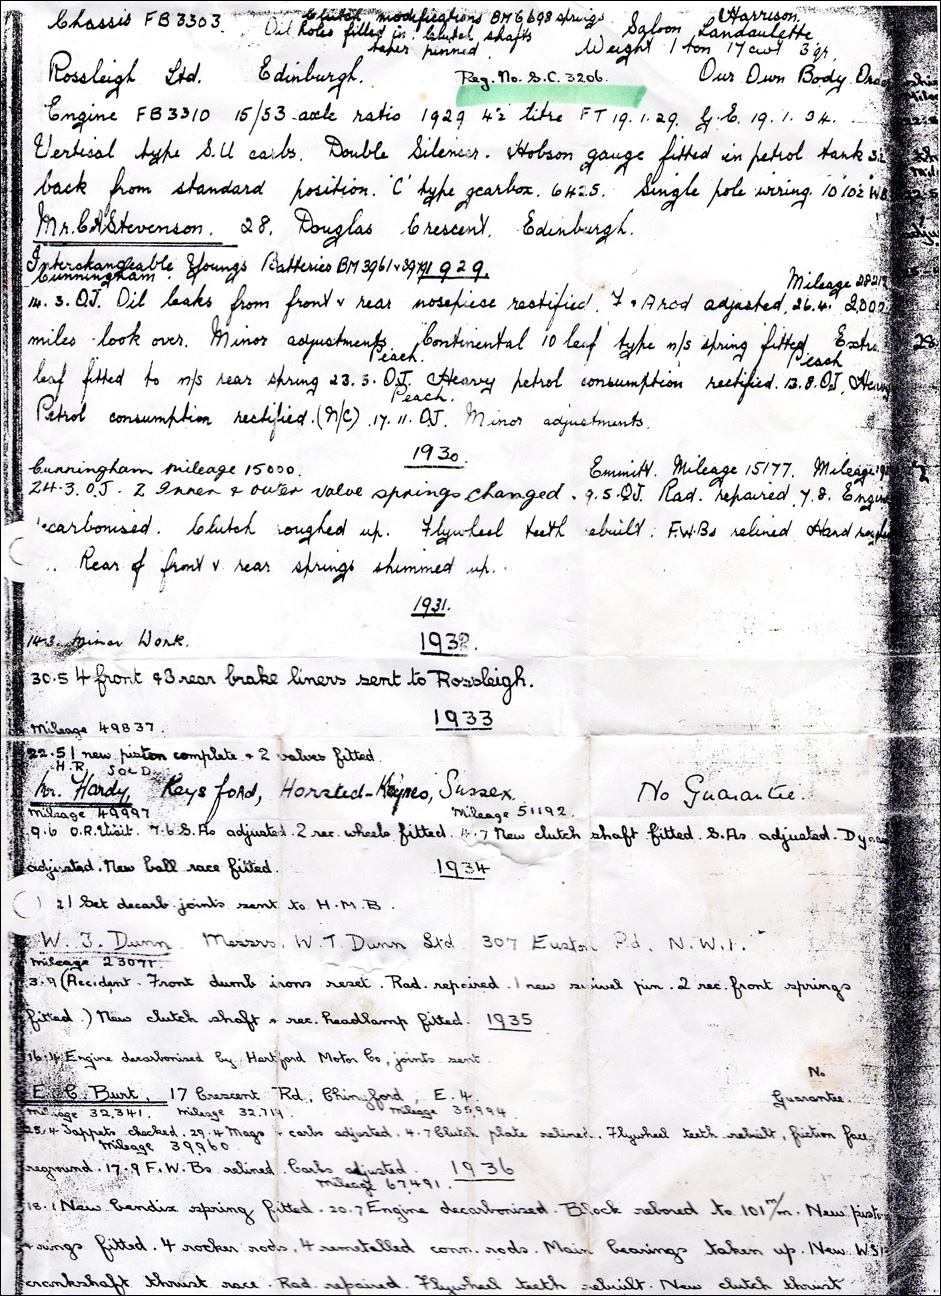 Chassis FB3303 Clutch modifications BM6698 springs. Harrison
Oil holes fitted in clutch shafts Saloon Landaulette
taper pinned Weight 1 ton 17 cwt 3 qr.
Rossleigh Ltd. Edinburgh. Reg. No. S.C. 3206. Our Own Body
Engine FB3310 15/53 axle ratio 1929 4½ litre FT 19.1.29. G.E. 19.1.34.
Vertical type S.U carbs. Double Silencer. Hobson gauge fitted in petrol tank
back from standard position. 'C' type gearbox. 6425. Single pole wiring 10'10½ WB
Mr. C.A Stevenson. 28, Douglas Crescent, Edinburgh.
Interchangeable Youngs Batteries BM3961 & 1929.
Cunningham Mileage
14.3. OJ. Oil leaks from front & rear nosepiece rectified. F & A rod adjusted. 26.4.
miles look over. Minor adjustments. Continental 10 leaf type n/s spring fitted Extra
Peach. Peach
leaf fitted to n/s rear spring 23.3. OJ. Heavy petrol consumption rectified. 13.8. OJ. Heavy
Peach.
Petrol consumption rectified. (N/C) 17.11. OJ. Minor adjustments.
1930.
Cunningham Mileage 15000. Emmitt. Mileage 15177. Mileage
24.3. OJ. 2 Inner & outer valve springs changed. 9.5. OJ. Rad. repaired 7.8. Engine
ecarbonised. Clutch roughed up. Flywheel teeth ebuilt. F.W.Bs relined Hand
Rear of front & rear springs shimmed up.
1931.
14.3. Minor Work. 1932.
30.5 4 front & 3 rear brake liners sent to Rossleigh.
Mileage 49837. 1933
22.5 1 new piston complete & 2 valves fitted.
H.R. SOLD
Mr. Hardy, Keysford, Horsted-Keynes, Sussex. No Guarantee.
Mileage 49997 Mileage 51192.
9.6 O.R. Visit. 7.6 S.As adjusted. 2 rec. wheels fitted. 7 New clutch shaft fitted. S.As adjusted.
adjusted. New ball race fitted. 1934
21 Set decarb joints sent to H.M.B.
W. T. Dunn Messrs. W. T Dunn Ltd 307 Euston Rd, N.W.1.
Mileage 23071
3.9 (Accident. Front dumb irons reset. Rad. repaired. 1 new swivel pin. 2 rec. front springs
fitted.) New clutch shaft & rec. headlamp fitted. 1935
16.4 Engine decarbonised by Hartford Motor Co, joints sent.
No
E. C. Burt, 17 Crescent Rd, Chingford, E.4. Guarantee.
Mileage 32,341. Mileage Mileage 35994
25.4 Tappets checked. 29.4 Mags & carbs adjusted. 4.7 Clutch plate relined. Flywheel teeth rebuilt, friction face
Mileage 39960
reground. 17.9 F.W.Bs relined. Carbs adjusted. 1936
Mileage 67491.
18.1 New bendix spring fitted. 20.7 Engine decarbonised. Block rebored to 101 m/m. New
& rings fitted. 4 rocker rods, 4 remetalled conn. rods. Main bearings taken up. New
crankshaft thrust race. Rad. repaired. Flywheel teeth rebuilt. New clutch thrust